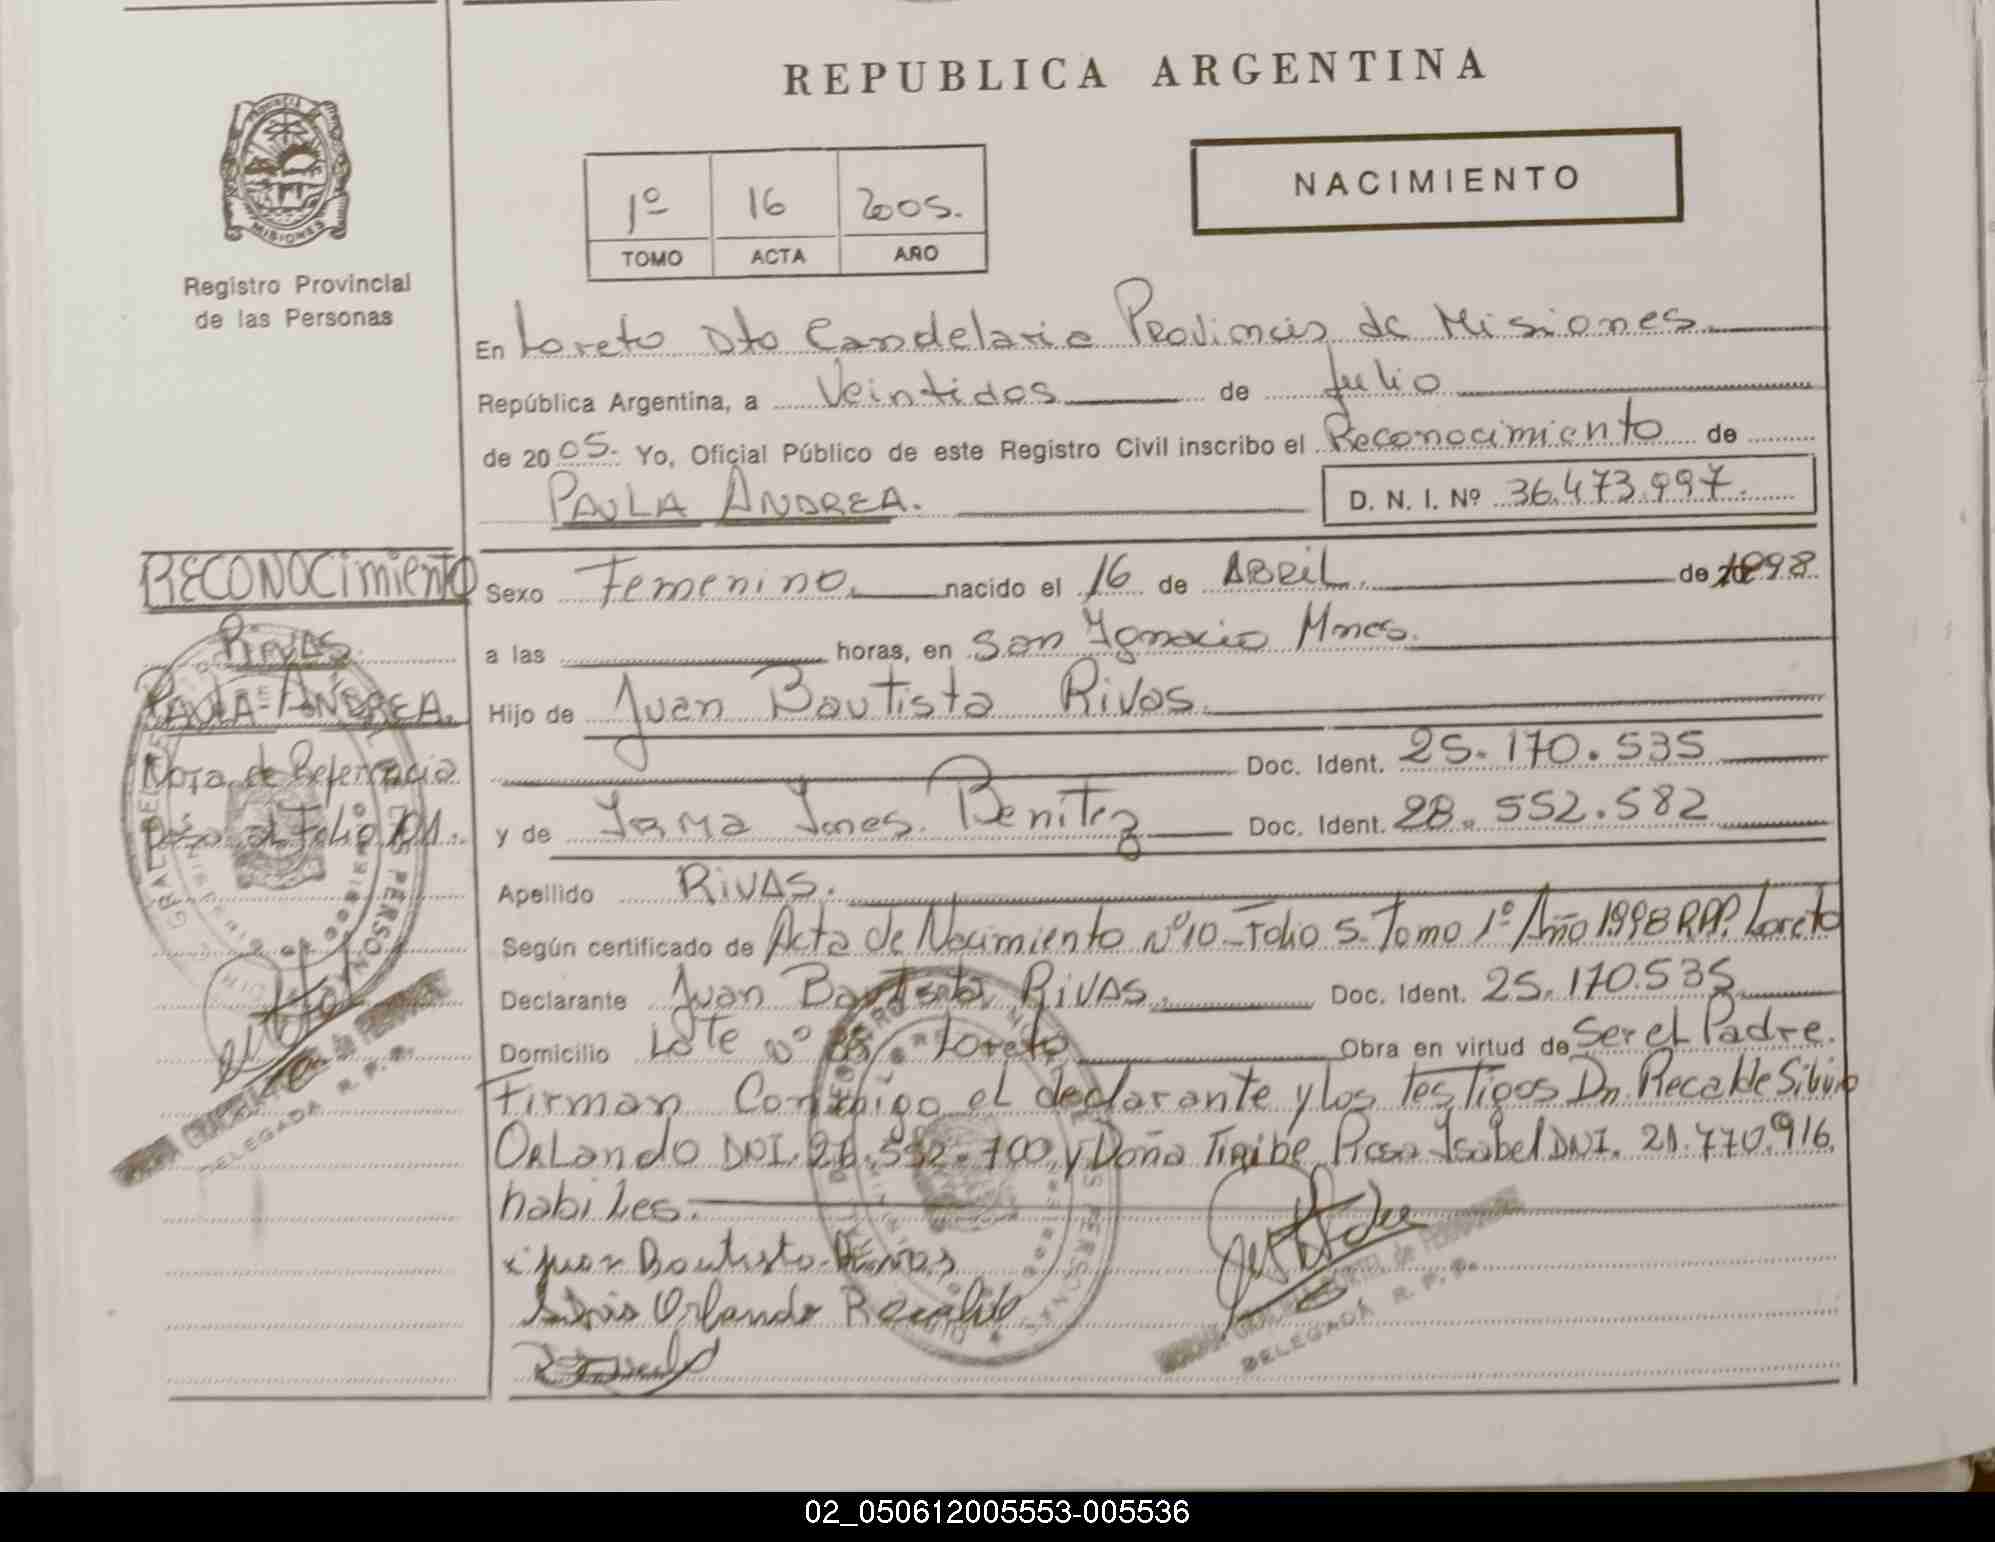 REPUBLICA ARGENTINA
PROVINCIA
MISIONES
Registro Provincial
de las Personas
1º 16 2005.
TOMO ACTA AÑO
NACIMIENTO
En Loreto Dto Candelaria Provincia de Misiones
República Argentina, a Veintidos de Julio
de 2005. Yo, Oficial Público de este Registro Civil inscribo el Reconocimiento de
PAULA ANDREA. D. N. I. Nº 36.473.997.
RECONOCimiento
RIVAS
PAULA ANDREA.
Nota de Referencia
Pasa al Folio
Sexo Femenino. nacido el 16 de ABRIL. de 1998
a las horas, en San Ignacio Mnes.
Hijo de Juan Bautista Rivas.
Doc. Ident. 25.170.535
y de Irma Ines Benitez Doc. Ident. 28.552.582
Apellido RIVAS.
Según certificado de Acta de Nacimiento Nº10 - Folio 5 - Tomo 1º Año 1998 RPP. Loreto
Declarante Juan Bautista RIVAS. Doc. Ident. 25.170.535
Domicilio Lote Nº Loreto Obra en virtud de Ser el Padre.
Firman Conmigo el declarante y los Testigos Dn. Recalde Silvio
ORLando DNI. 700 y Doña Rosa Isabel DNI. 21.770.916.
habiles.
Juan Bautista Rivas
Silvio Orlando Recalde
DELEGADA R. P. P.
DELEGADA R. P. P.
02_050612005553-005536